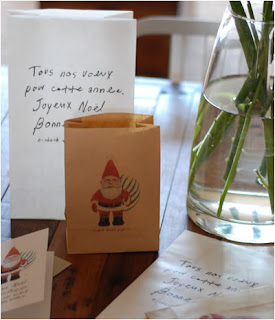 Tous nos voeux
pour cette année.
Joyeux Noël
Bonne
Tous nos
pour cette an
Joyeux N
Bonne